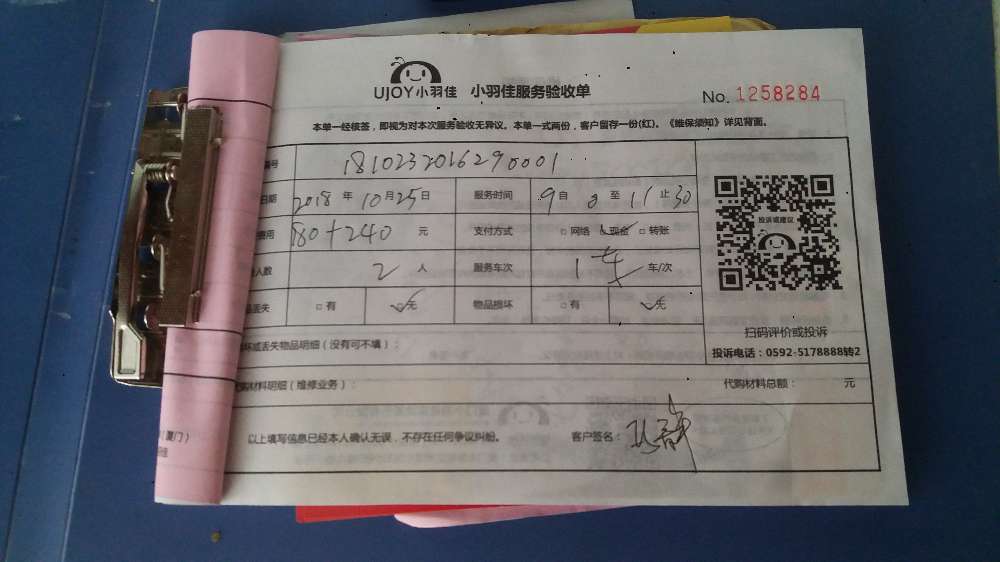 UJOY小羽佳 小羽佳服务验收单
No. 1258284
本单一经核签，即视为对本次服务验收无异议。本单一式两份，客户留存一份(红)。《维保须知》详见背面。
编号 1810232016290001
日期 2018 年 10 月 25 日 服务时间 9 自 0 至 11 止 30
费用 180+240 元 支付方式 □网络 ☑现金 □转账
人数 2 人 服务车次 1车 车/次
丢失 □有 ☑无 物品损坏 □有 ☑无
投诉或建议
扫码评价或投诉
投诉电话：0592-5178888转2
坏或丢失物品明细（没有可不填）：
购材料明细（维修业务）： 代购材料总额： 元
以上填写信息已经本人确认无误，不存在任何争议纠纷。 客户签名：
厦门）